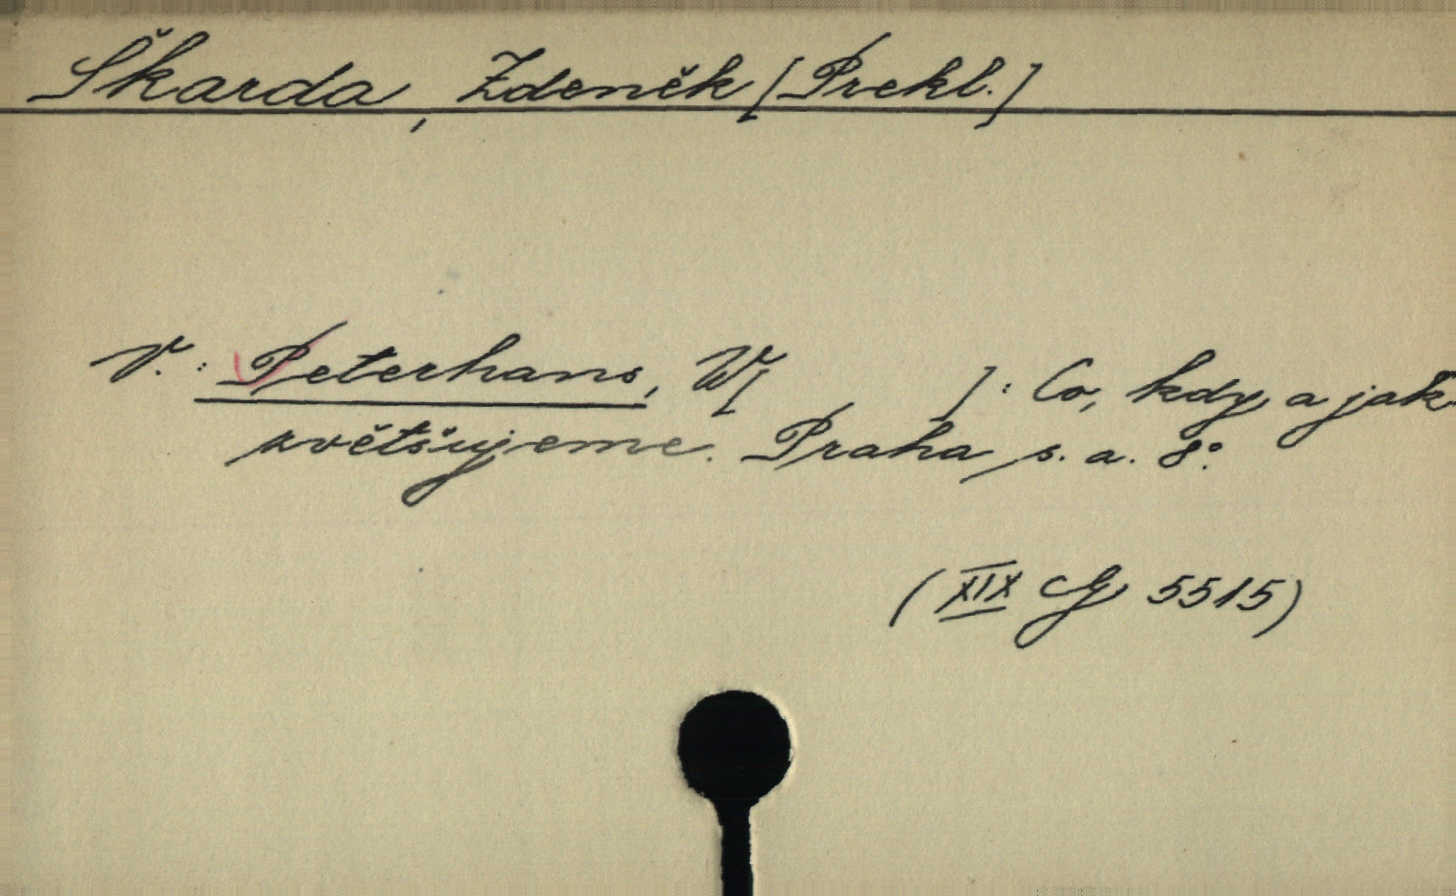 Škarda, Zdeněk [Překl.]
V.: Peterhans, W[ ]: Co, kdy a jak
zvětšujeme. Praha s. a. 8°
(XIX G 5515)